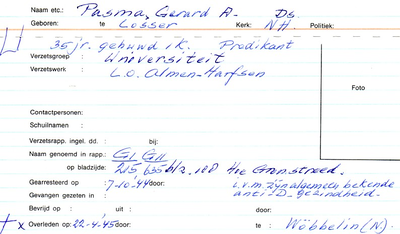 Naam etc.: Pasma, Gerard A. Ds.
Geboren: te Losser Kerk: N.H. Politiek:
35 jr. gehuwd 1 K. Predikant
Verzetsgroep : Universiteit
Verzetswerk : L.O. Almen-Harfsen
Foto
Contactpersonen:
Schuilnamen :
Verzetsrapp. ingel. dd. : bij:
Naam genoemd in rapp.: GI GII
op bladzijde: 215, 635
Gearresteerd op : 7-10-44 door: i.v.m. zijn algemeen bekende
Gevangen gezeten in : anti-D. gezindheid.
Bevrijd op : uit : door:
† x Overleden op: 22-4-'45 door: te : Wöbbelin (N).